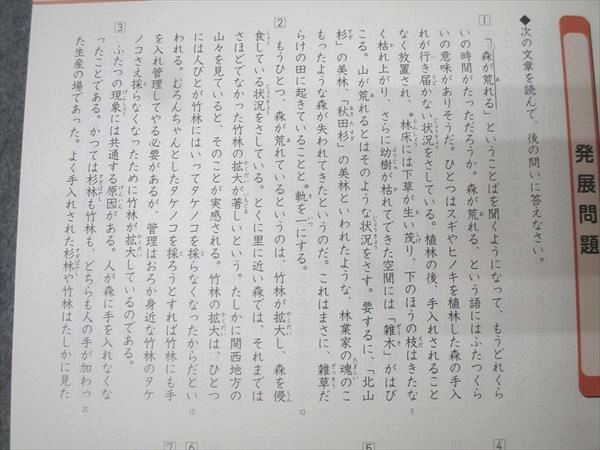 発展問題
◆次の文章を読んで、後の問いに答えなさい。
1 「森が荒れる」ということばを聞くようになって、もうどれくら
いの時間がたっただろうか。森が荒れる、という語にはふたつくら
いの意味がありそうだ。ひとつはスギやヒノキを植林した森の手入
れが行き届かない状況をさしている。植林の後、手入れされること
なく放置され、*林床には下草が生い茂り、下のほうの枝はきたな
く枯れ上がり、さらに幼樹が枯れてできた空間には「雑木」がはび
こる。山が荒れるとはそのような状況をさす。要するに、「北山
杉」の美林、「秋田杉」の美林といわれたような、林業家の魂のこ
もったような森が失われてきたというのだ。これはまさに、雑草だ
らけの田に起きていることと*軌を一にする。
2 もうひとつ、森が荒れているというのは、竹林が拡大し、森を侵
食している状況をさしている。とくに里に近い森では、それまでは
さほどでなかった竹林の拡大が著しいという。たしかに関西地方の
山々を見ていると、そのことが実感される。竹林の拡大は、ひとつ
には人びとが竹林にはいってタケノコを採らなくなったからだとい
われる。むろんちゃんとしたタケノコを採ろうとすれば竹林にも手
を入れ管理してやる必要があるが、管理はおろか身近な竹林のタケ
ノコさえ採らなくなったために竹林が拡大しているのである。
3 ふたつの現象には共通する原因がある。人が森に手を入れなくな
ったことである。かつては杉林も竹林も、どちらも人の手が加わっ
た生産の場であった。よく手入れされた杉林や竹林はたしかに見た
5
10
15
20
4
5
6
7